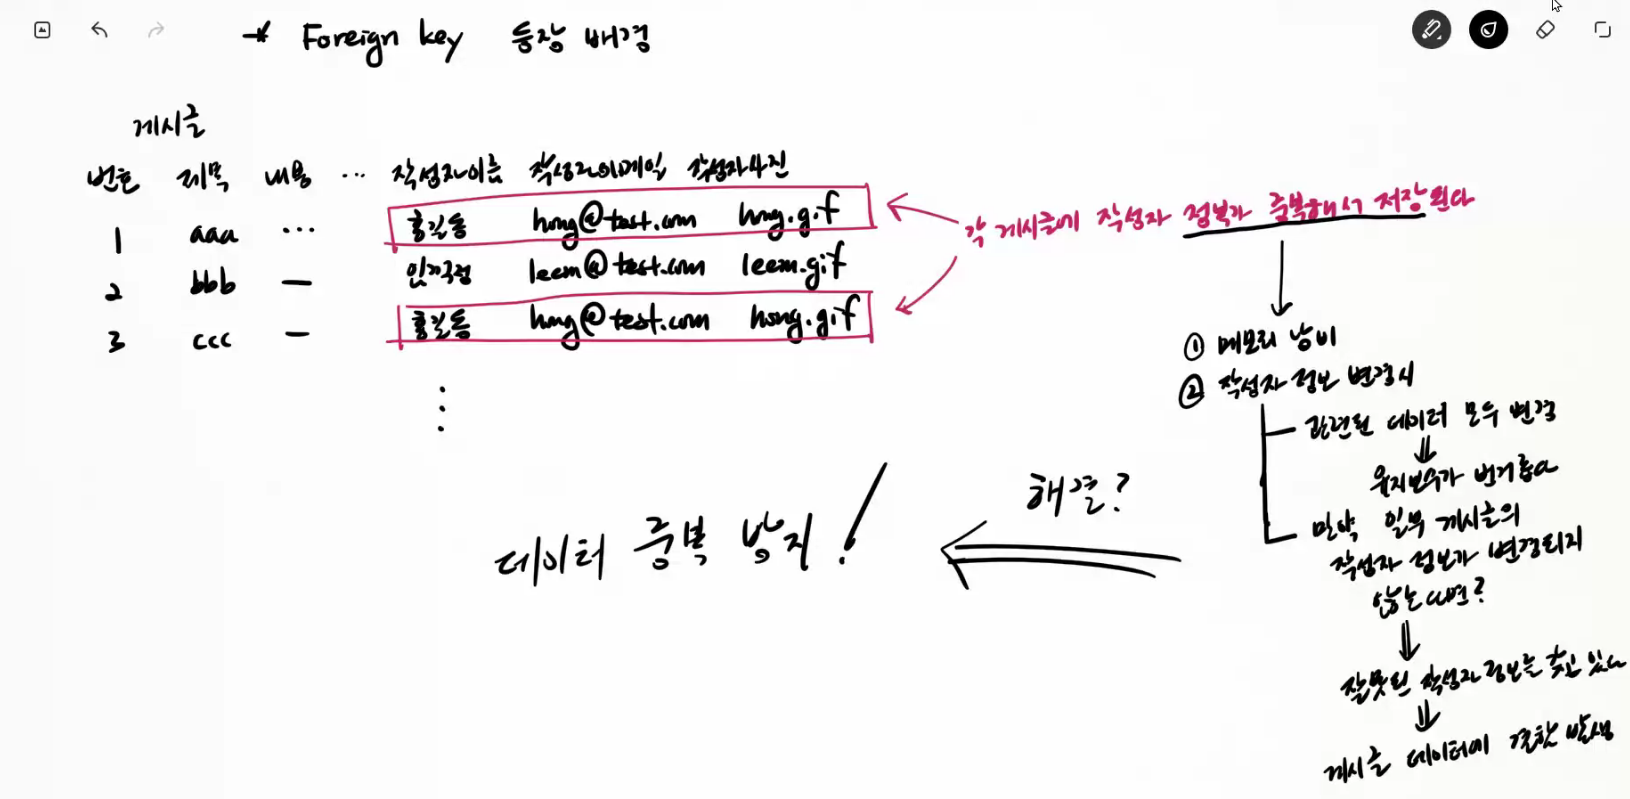 Foreign key 등장 배경
게시글
번호 제목 내용 ... 작성자이름 작성자이메일 작성자사진
1 aaa ... 홍길동 hong@test.com hong.gif
2 bbb — 임꺽정 leem@test.com leem.gif
3 ccc — 홍길동 hong@test.com hong.gif
각 게시글에 작성자 정보가 중복해서 저장된다
① 메모리 낭비
② 작성자 정보 변경시
관련된 데이터 모두 변경
유지보수가 번거롭다
만약 일부 게시글의
작성자 정보가 변경되지
않는다면?
잘못된 작성자정보를 갖고 있다
게시글 데이터에 결함 발생
해결?
데이터 중복 방지!